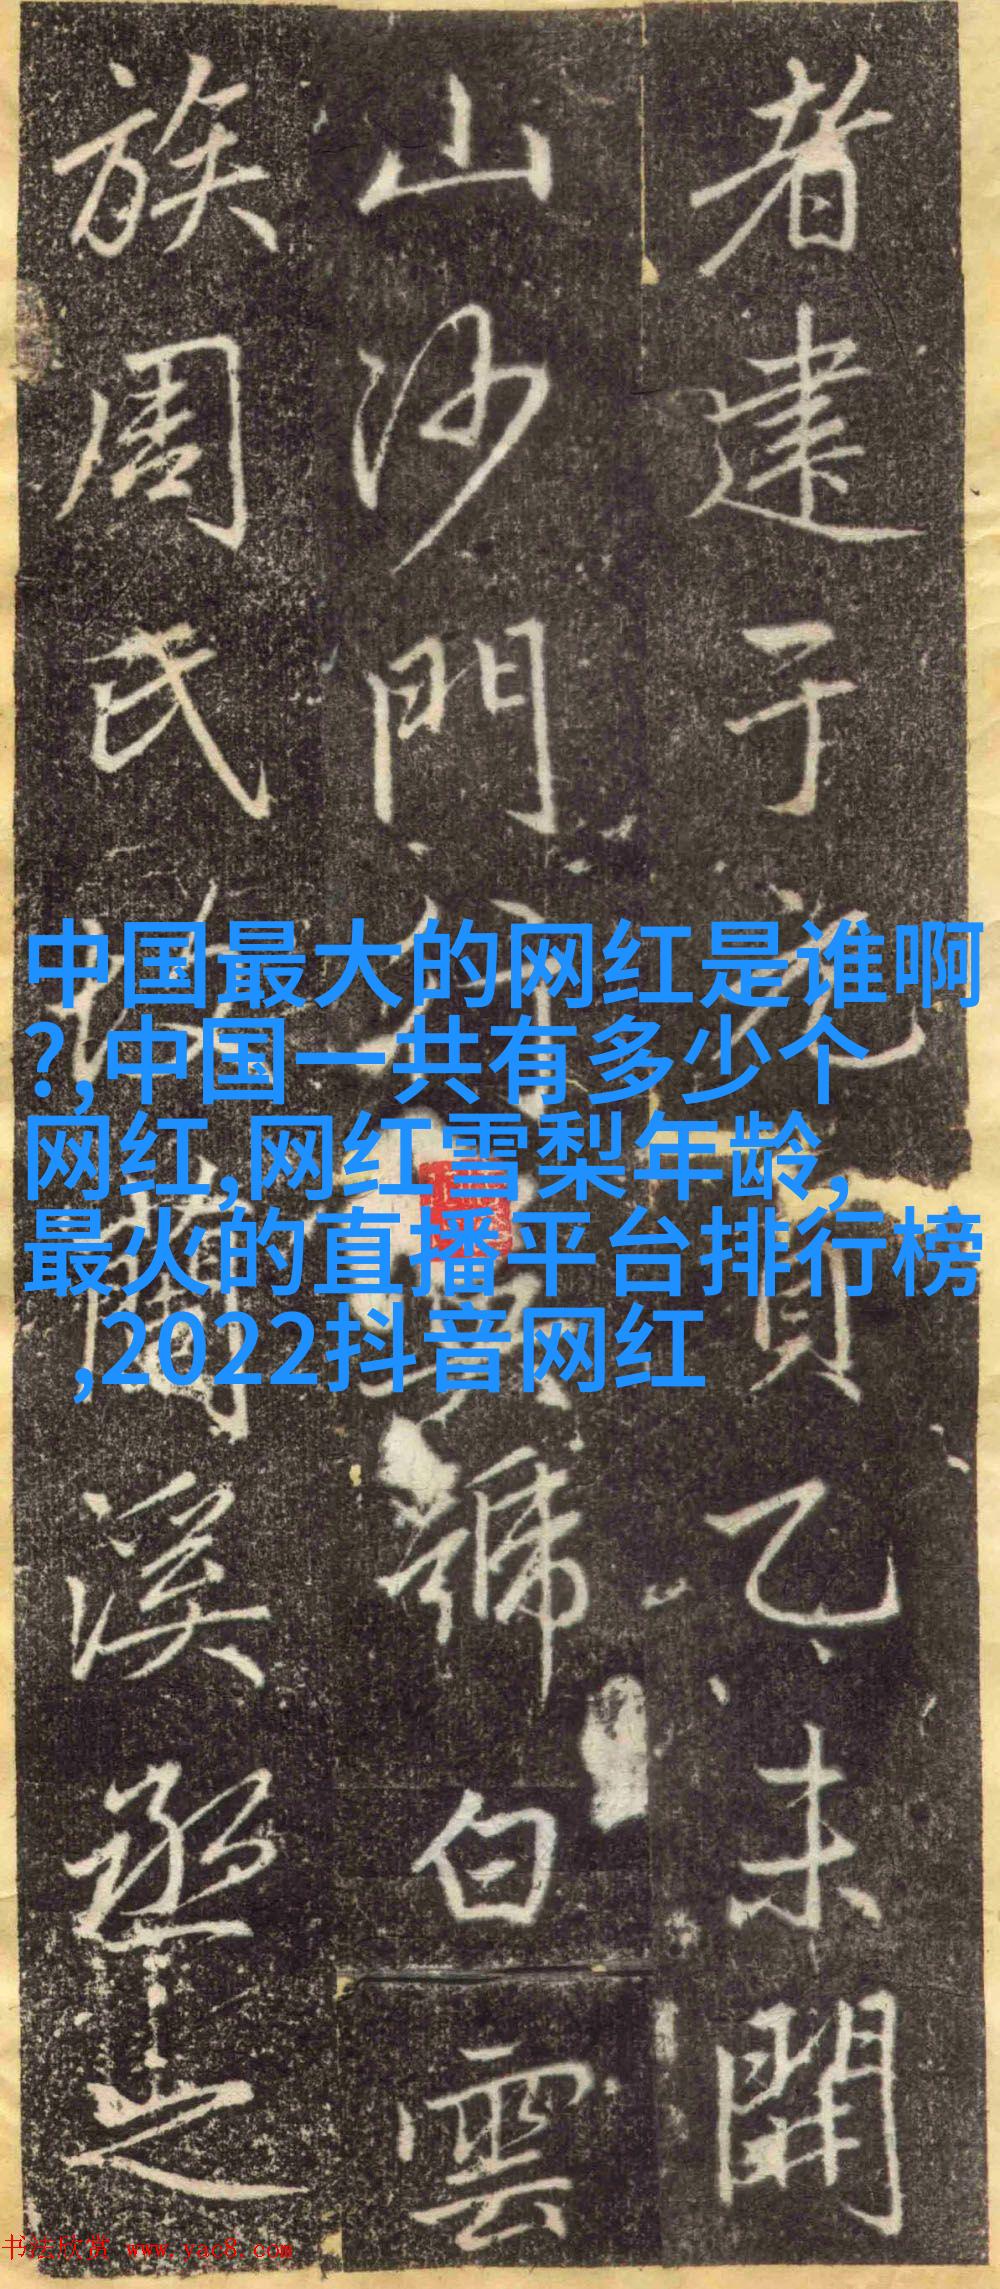 者建于元貞乙未開
山沙門號白雲
族周氏蘭溪丞之
中国最大的网红是谁啊
?,中国一共有多少个
网红,网红雪梨年龄,
最火的直播平台排行榜
,2022抖音网红
书法欣赏 www.yac8.com